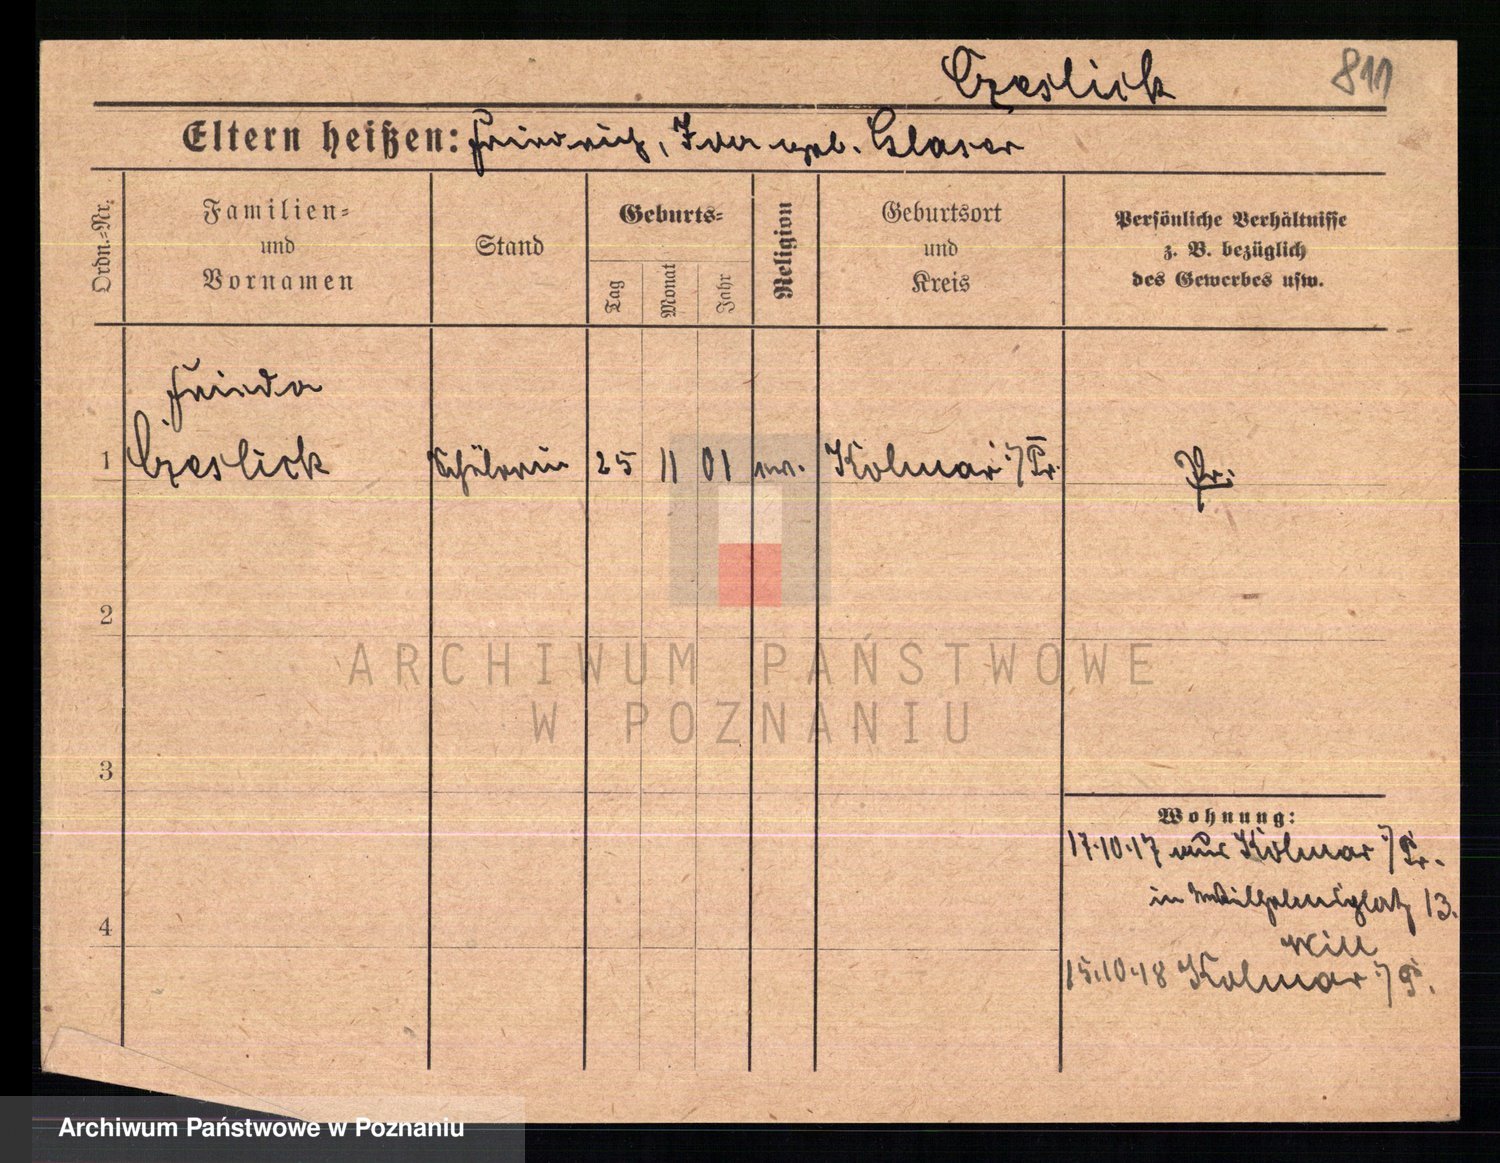 Czeslick 811
Eltern heißen: Friedrich, Ida geb. Glaser
Ordn.-Nr.
Familien-
und
Vornamen
Stand
Geburts-
Tag
Monat
Jahr
Religion
Geburtsort
und
Kreis
Persönliche Verhältnisse
z. B. bezüglich
des Gewerbes usw.
Frieda
1 Czeslick Schülerin 25 11 01 ev. Kolmar i/Pr. Pr.
2
3
4
Wohnung:
17.10.17 aus Kolmar i/Pr.
in Wilhelmsplatz 13.
Will
15.10.18 Kolmar i/P.
ARCHIWUM PAŃSTWOWE
W POZNANIU
Archiwum Państwowe w Poznaniu